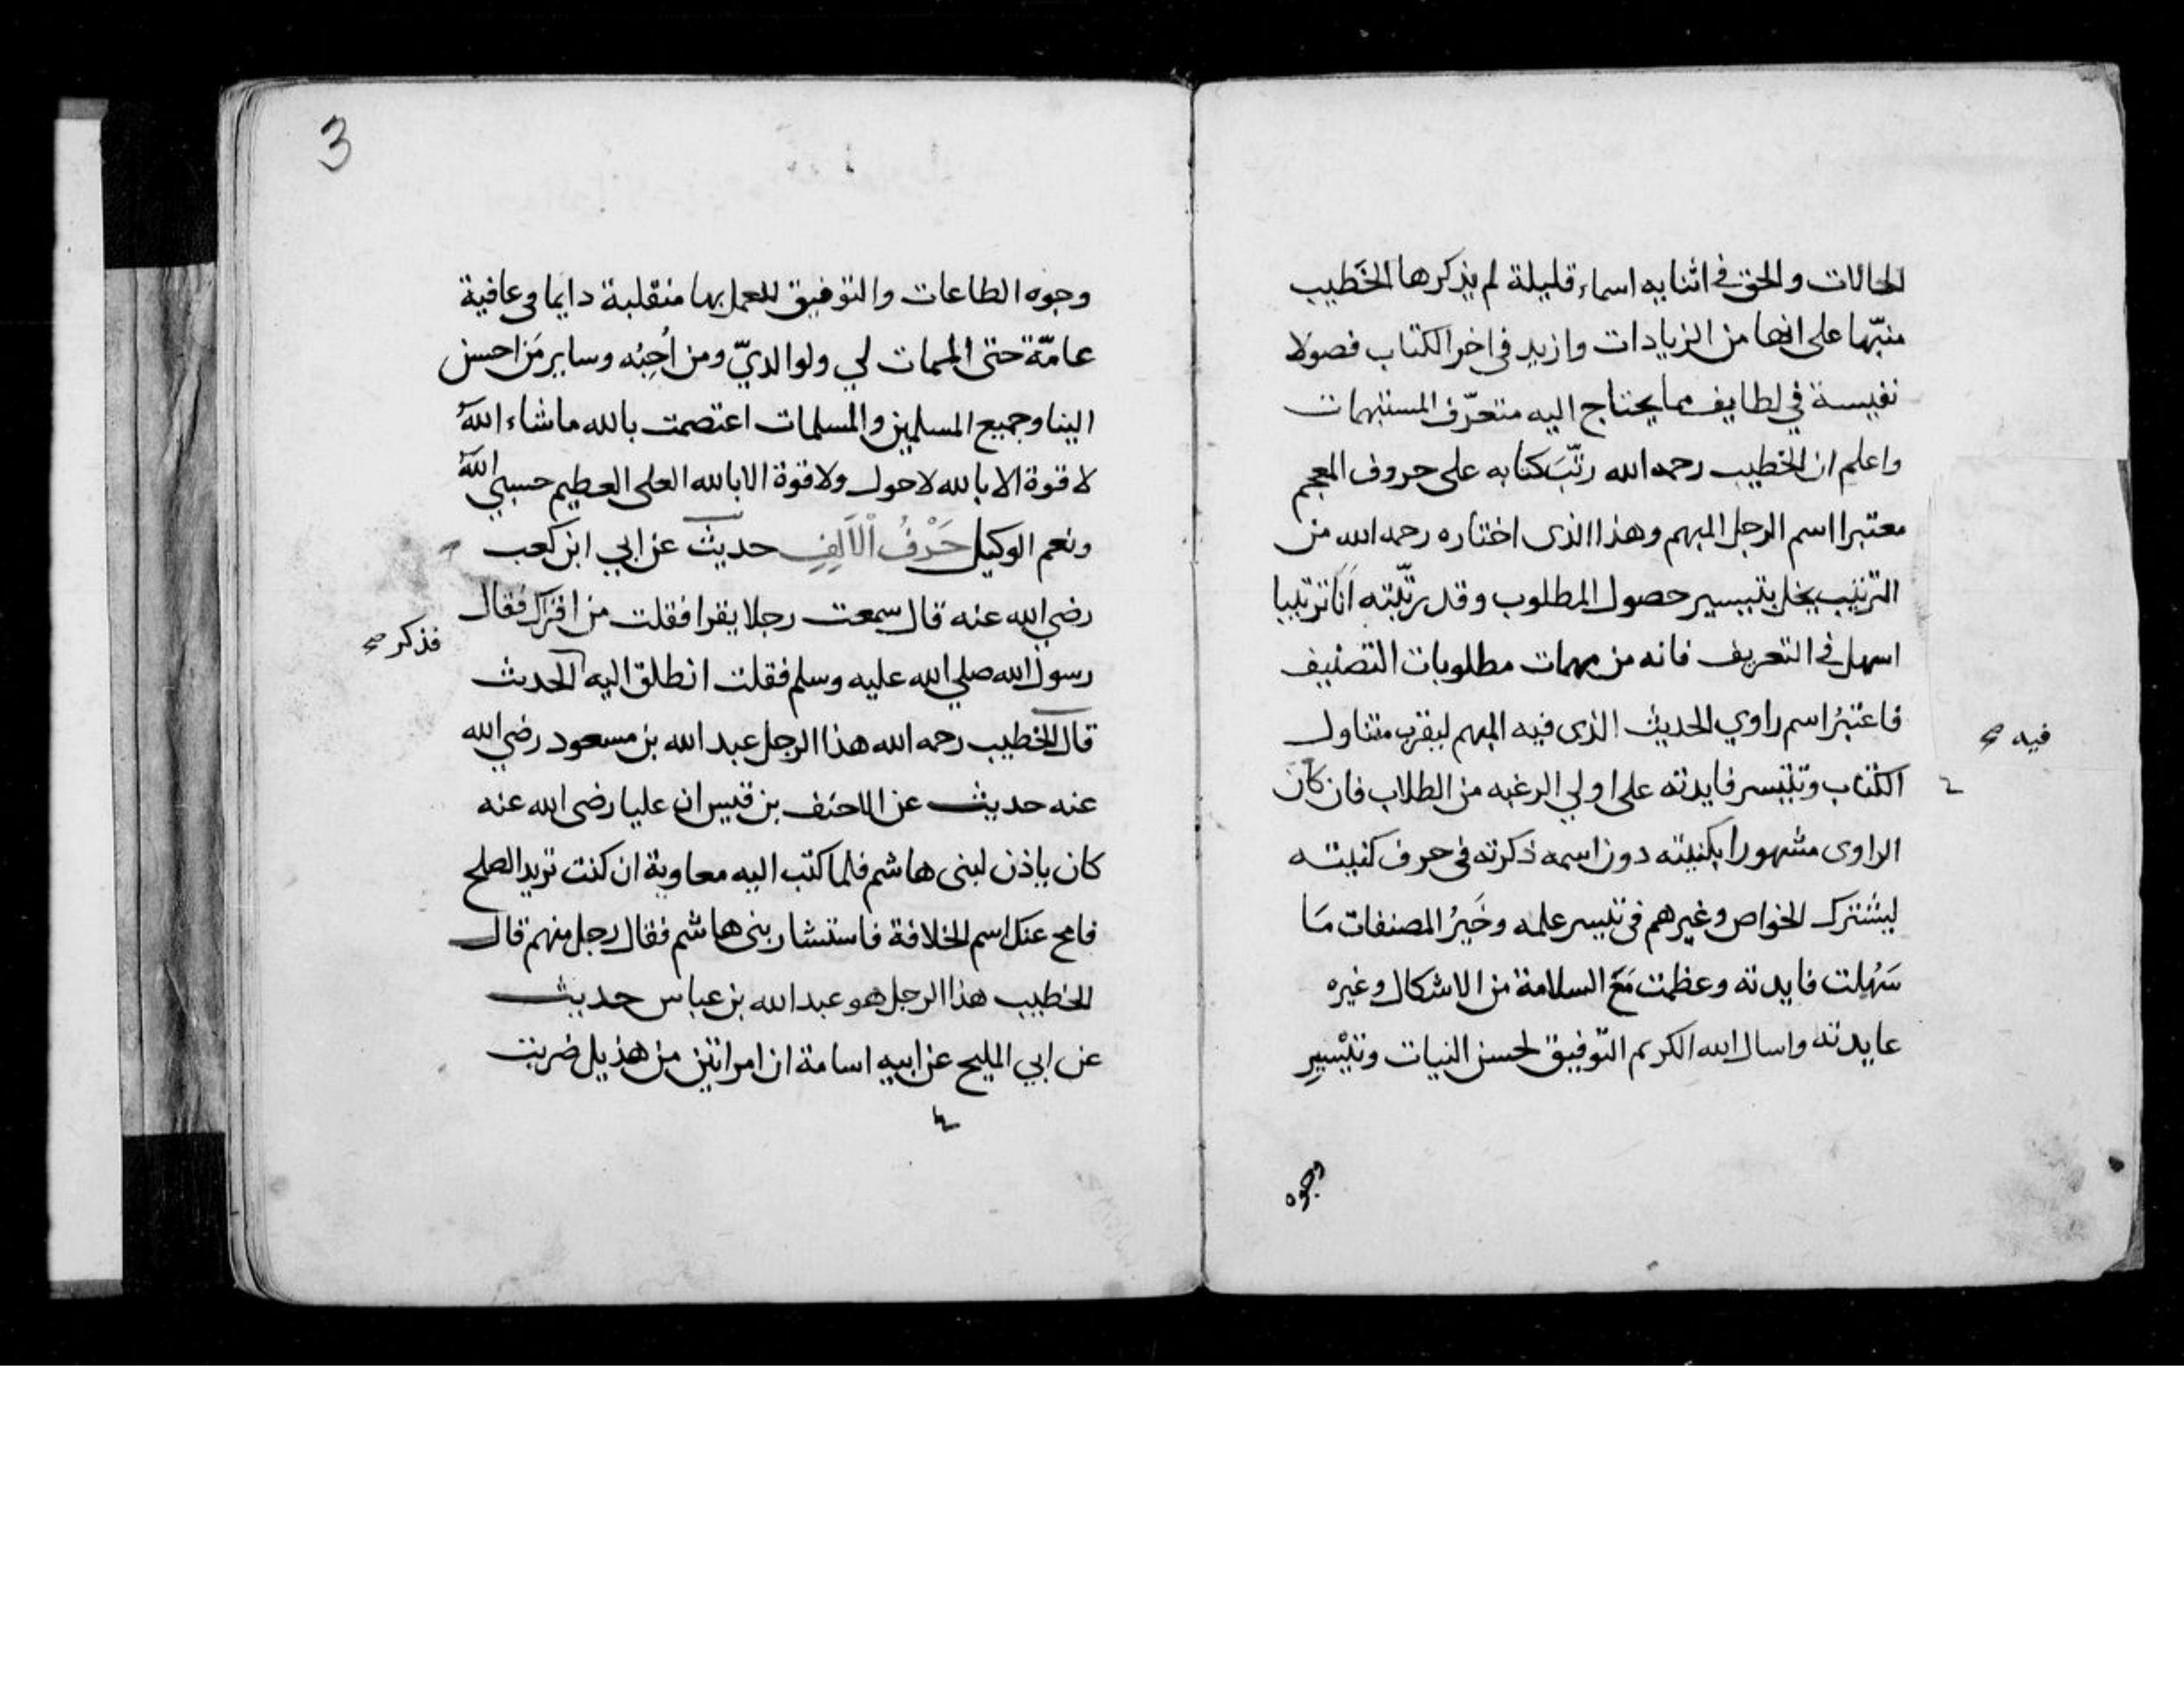 الحالات والحق في اثنايه اسماء قليلة لم يذكرها الخَطيب
منبّها على انها من الزيادات وازيد في اخر الكتاب فصولا
نفيسة في لطايف مما يحتاج اليه متعرّف المستبهمات
واعلم ان الخطيب رحمه الله رتّبَ كتابه على حروف المعجم
معتبرا اسم الرجل المبهم وهذا الذى اختاره رحمه الله من
الترتيب يخل بتيسير حصول المطلوب وقد رتّبته اَنَا ترتيبا
اسهل في التعريف فانه من مهمات مطلوبات التصنيف
فاعتبرُ اسم راوي الحديث الذى فيه المبهم ليقرب متناول
فيه صح
الكتاب وتتيسر فايدته على اولي الرغبه من الطلاب فان كان
الراوى مشهورا بكنيته دون اسمه ذكرته في حرف كنيته
ليشترك الخواص وغيرهم في تيسر علمه وخَيرُ المصنفات مَا
سَهُلت فايدته وعظمت مَعَ السلامة من الاشكال وغيره
عايدته واسال الله الكريم التوفيق لحسن النيات وتيْسيرِ
وجوه
3
وجوه الطاعات والتوفيق للعمل بها منقلبة دايما في عافية
عامّة حتى الممات لي ولوالديّ ومن اُحِبُه وساير مَن احسن
الينا وجميع المسلمين والمسلمات اعتصمت بالله ما شاء اللهُ
لا قوة الا بالله لا حول ولا قوة الا بالله العلى العظيم حسبي اللهُ
ونعم الوكيل حَرْفُ الْاَلِفِ حديث عن ابي ابن كعب
رضي الله عنه قال سمعت رجلا يقرا فقلت من اقراك فقال
رسول الله صلي الله عليه وسلم فقلت انطلق اليه الحديث
فذكر صح
قال الخطيب رحمه الله هذا الرجل عبد الله بن مسعود رضي الله
عنه حديث عن الاحنف بن قيس ان عليا رضى الله عنه
كان ياذن لبنى هاشم فلما كتب اليه معاوية ان كنت تريد الصلح
فامح عنك اسم الخلافة فاستشار بنى هاشم فقال رجل منهم قال
الخطيب هذا الرجل هو عبد الله بن عباس حديث
عن ابي المليح عن ابيه اسامة ان امراتين من هذيل ضربت